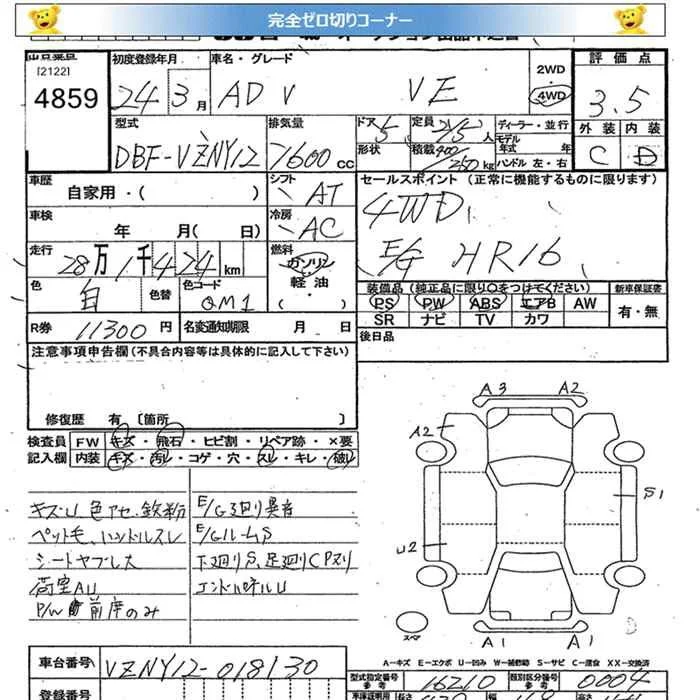 完全ゼロ切りコーナー
出品番号
[2122]
4859
初度登録年月
24年 3月
車名・グレード
AD V VE
2WD
・
4WD
評価点
3.5
外装 内装
C D
型式
DBF-VZNY12
排気量
1600cc
ドア
5
定員
2/5人
形状
積載
400/250kg
ディーラー・並行
モデル年式 年
ハンドル 左・右
車歴
自家用・( )
シフト
AT
車検
年 月( 日)
冷房
AC
セールスポイント (正常に機能するものに限ります)
4WD,
E/G HR16
走行
28万1千424km
燃料
ガソリン
・
軽油
・
色
白
色替
色コード
QM1
装備品(純正品に限り〇をつけてください)
PS PW ABS エアB AW
SR ナビ TV カワ
新車保証書
有・無
R券 11300円
名変通知期限 月 日
後日品
注意事項申告欄(不具合内容等は具体的に記入して下さい)
修復歴 有 [箇所 ]
検査員
記入欄
FW キズ・飛石・ヒビ割・リペア跡・×要
内装 キズ・汚レ・コゲ・穴・スレ・キレ・破レ
キズU、色アセ、鉄粉
ペット毛、ハンドルスレ
シートヤブレ大
荷室AU
P/W 前席のみ
E/G廻り異音
E/GルームS
下廻りS、足廻りCPヌリ
エンドパネルU
A3 A2
A2
S1
U2
A1 A1
スペア
A-キズ E-エクボ U-凹み W-補修跡 S-サビ C-腐食 XX-交換済
車台番号
VZNY12-018130
登録番号
型式指定番号
参考
16210
類別区分番号
参考
0004